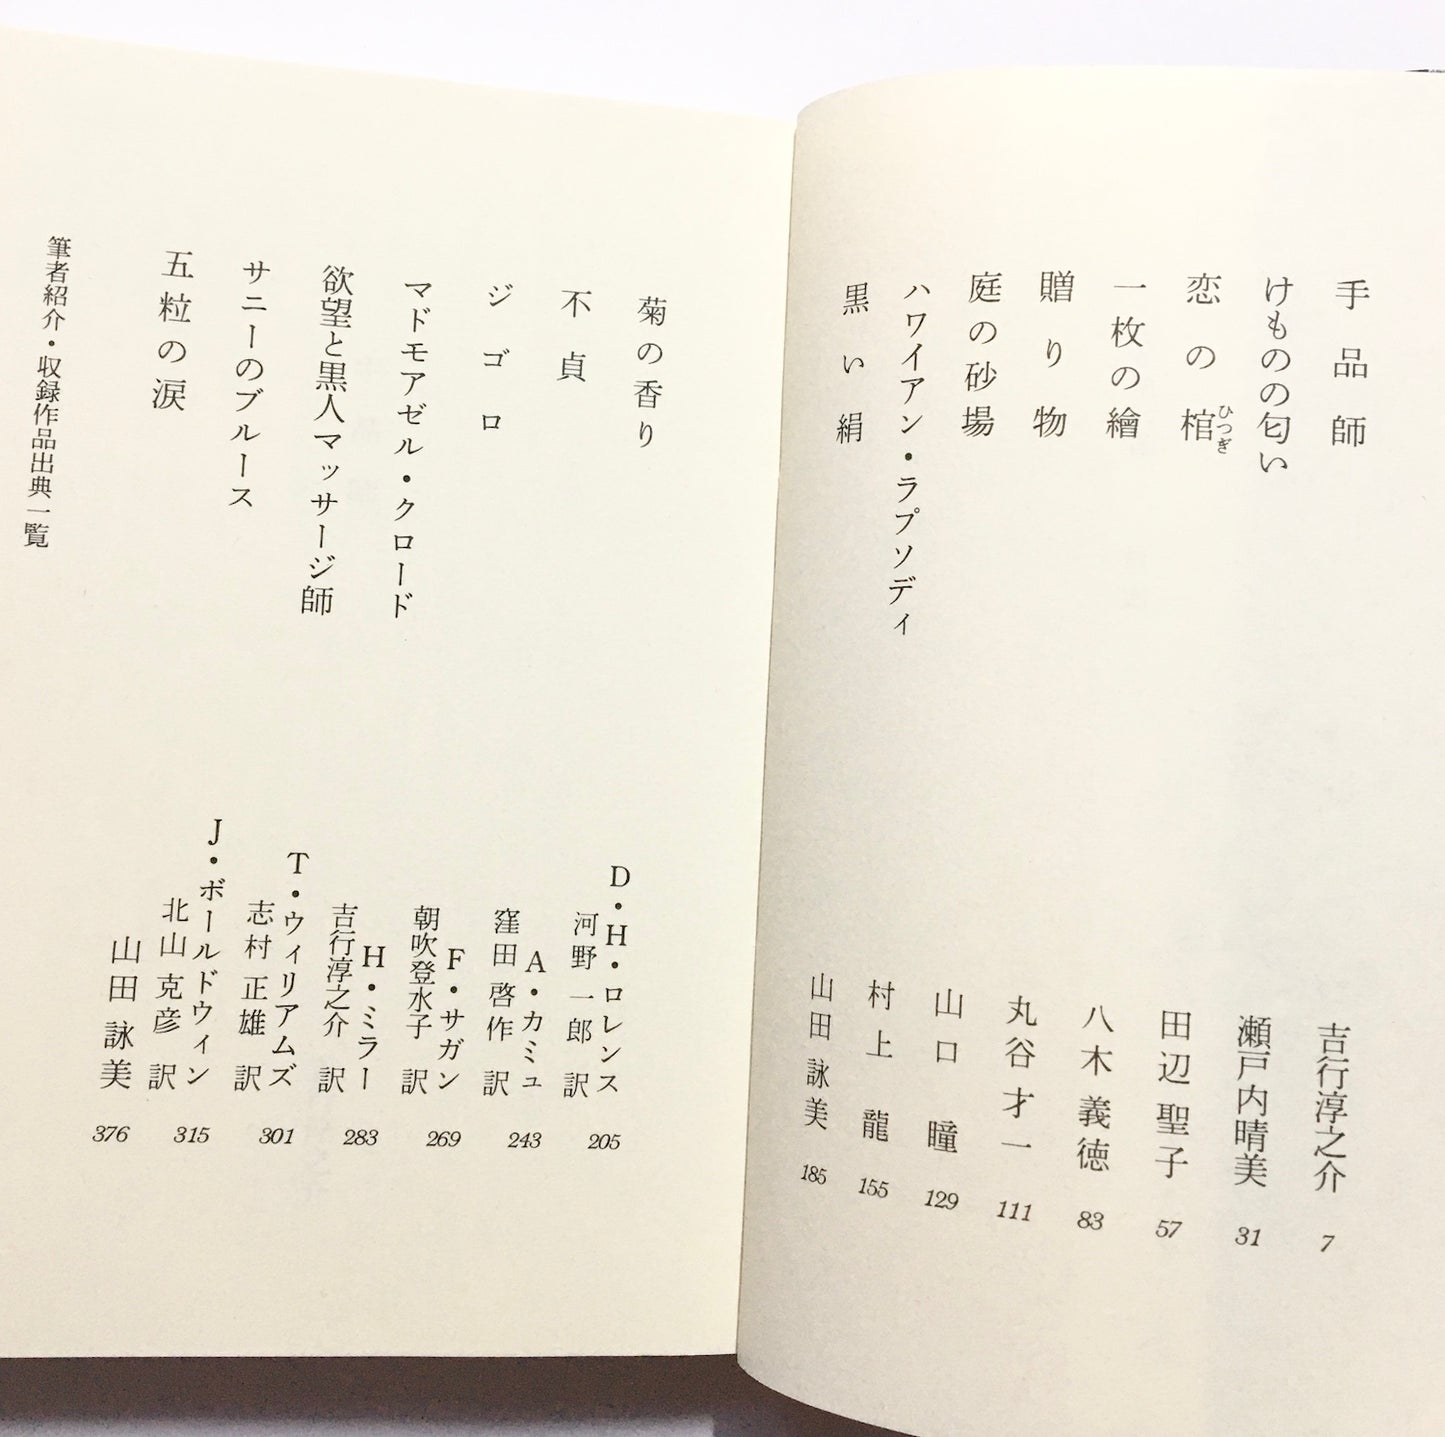 手品師
吉行淳之介
7
けものの匂い
瀬戸内晴美
31
恋の棺
ひつぎ
田辺聖子
57
一枚の繪
八木義徳
83
贈り物
丸谷才一
111
庭の砂場
山口瞳
129
ハワイアン・ラプソディ
村上龍
155
黒い絹
山田詠美
185
菊の香り
D・H・ロレンス
河野一郎 訳
205
不貞
A・カミュ
窪田啓作 訳
243
ジゴロ
F・サガン
朝吹登水子 訳
269
マドモアゼル・クロード
H・ミラー
吉行淳之介 訳
283
欲望と黒人マッサージ師
T・ウィリアムズ
志村正雄 訳
301
サニーのブルース
J・ボールドウィン
北山克彦 訳
315
五粒の涙
山田詠美
376
筆者紹介・収録作品出典一覧